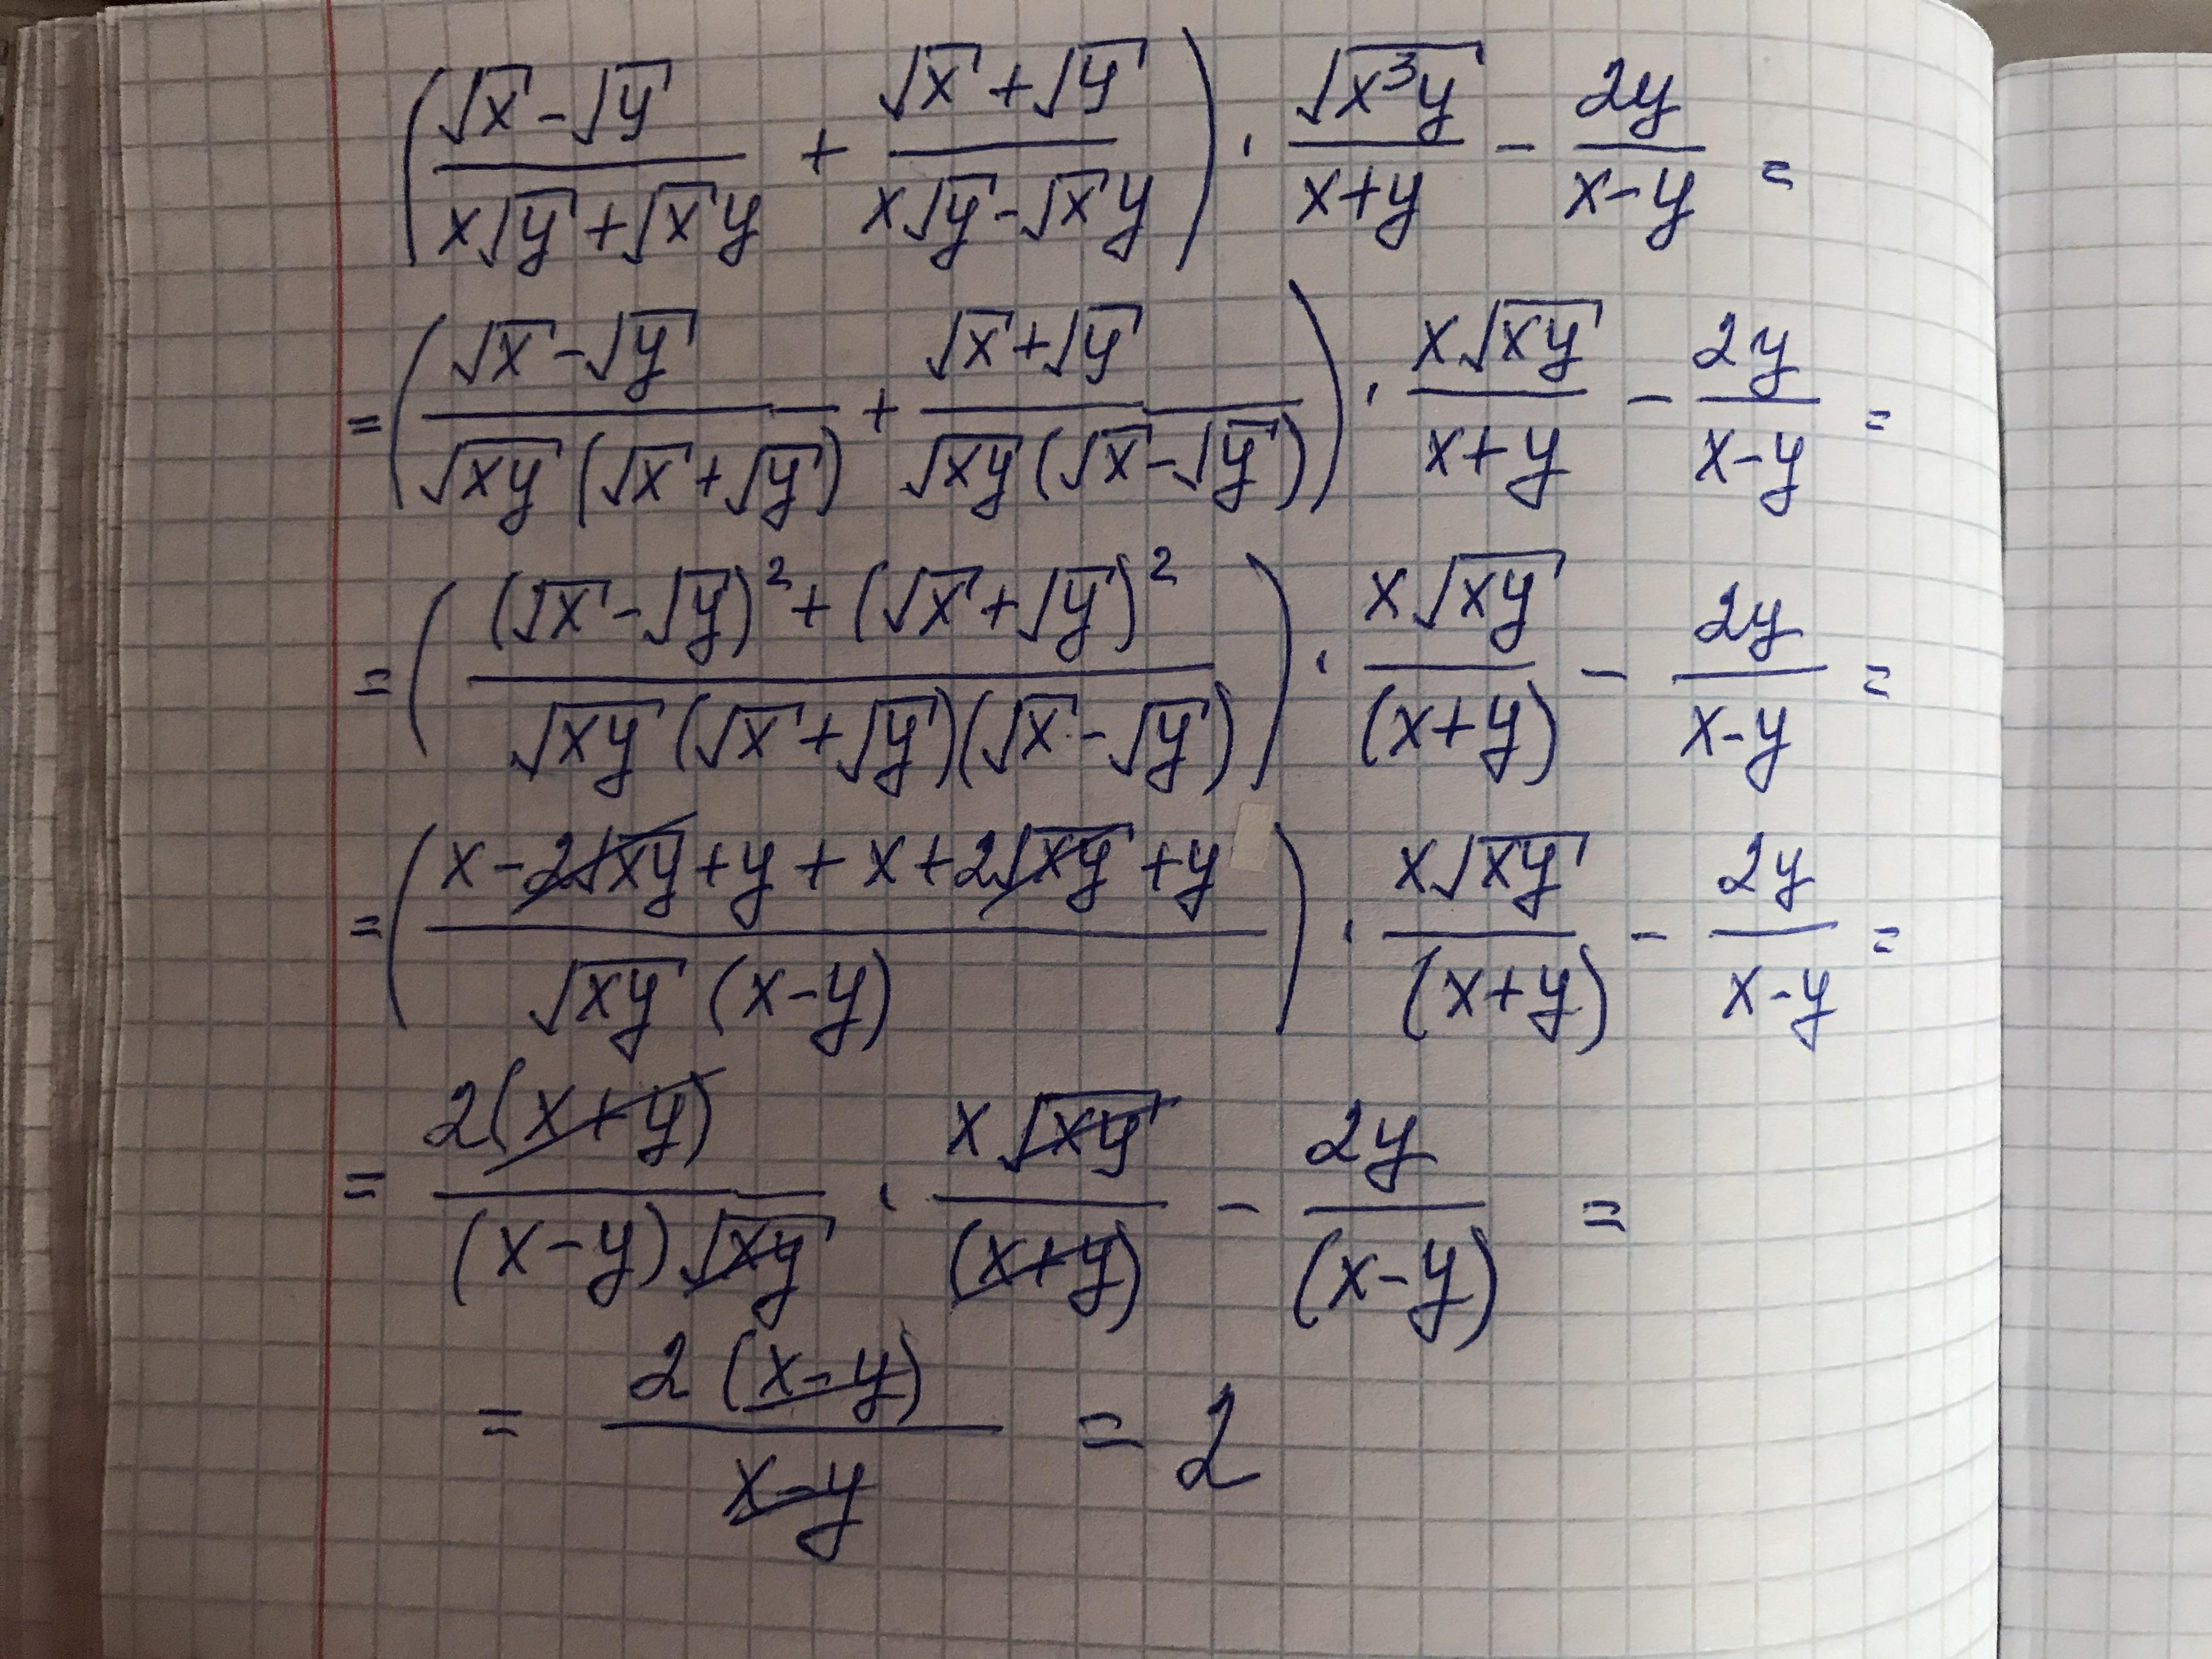 (√x - √y / x√y + √x y + √x + √y / x√y - √x y) · √x³y / x+y - 2y / x-y =
= (√x - √y / √xy (√x + √y) + √x + √y / √xy (√x - √y)) · x√xy / x+y - 2y / x-y =
= ((√x - √y)² + (√x + √y)² / √xy (√x + √y)(√x - √y)) · x√xy / (x+y) - 2y / x-y =
= (x - 2√xy + y + x + 2√xy + y / √xy (x-y)) · x√xy / (x+y) - 2y / x-y =
= 2(x+y) / (x-y)√xy · x√xy / (x+y) - 2y / (x-y) =
= 2(x-y) / x-y = 2